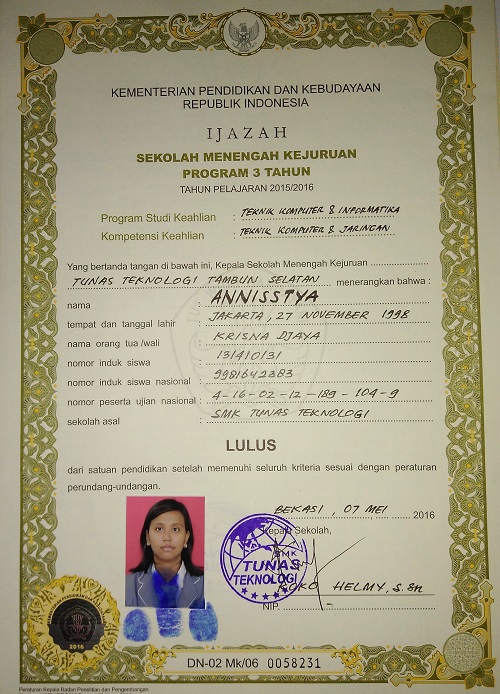 KEMENTERIAN PENDIDIKAN DAN KEBUDAYAAN
REPUBLIK INDONESIA
IJAZAH
SEKOLAH MENENGAH KEJURUAN
PROGRAM 3 TAHUN
TAHUN PELAJARAN 2015/2016
Program Studi Keahlian : TEKNIK KOMPUTER & INFORMATIKA
Kompetensi Keahlian : TEKNIK KOMPUTER & JARINGAN
Yang bertanda tangan di bawah ini, Kepala Sekolah Menengah Kejuruan
TUNAS TEKNOLOGI TAMBUN SELATAN menerangkan bahwa :
nama : ANNISSTYA
tempat dan tanggal lahir : JAKARTA, 27 NOVEMBER 1998
nama orang tua/wali : KRISNA DJAYA
nomor induk siswa : 131410131
nomor induk siswa nasional : 9981642383
nomor peserta ujian nasional : 4-16-02-12-189-104-9
sekolah asal : SMK TUNAS TEKNOLOGI
LULUS
dari satuan pendidikan setelah memenuhi seluruh kriteria sesuai dengan peraturan
perundang-undangan.
BEKASI, 07 MEI 2016
Kepala Sekolah,
SMK
TUNAS
TEKNOLOGI
HELMY, S.Sn
NIP.
2016
DN-02 Mk/06 0058231
Peraturan Kepala Badan Penelitian dan Pengembangan